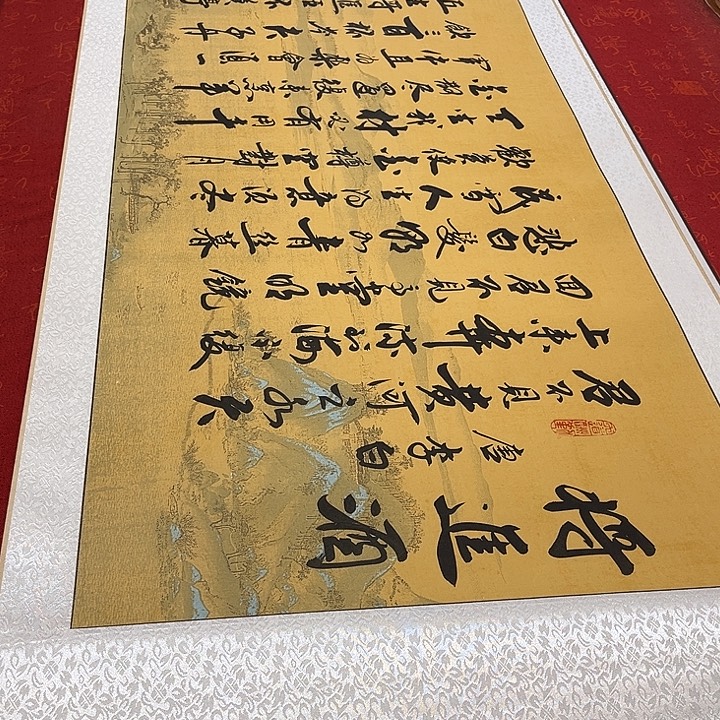 将進酒
唐李白
君不見黄河之水天
上来奔流到海不復
回君不見高堂明鏡
悲白髮朝如青丝暮
成雪人生得意須尽
歡莫使金樽空對月
天生我材必有用千
金散尽還復来烹羊
宰牛且為樂會須一
飲三百杯岑夫子丹
丘生将進酒杯莫停